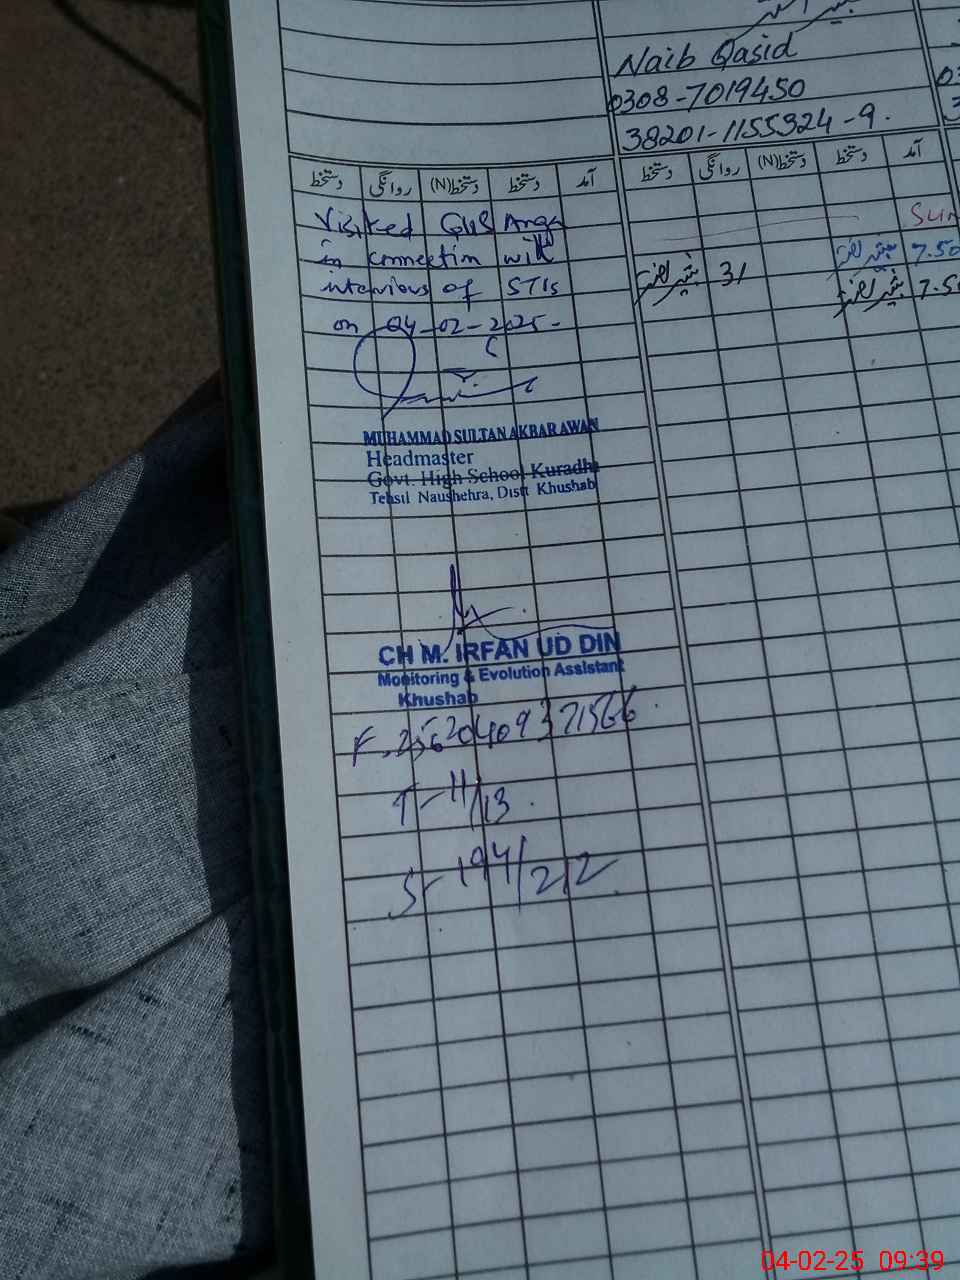 Naib Qasid
0308-7019450
38201-1155324-9.
آمد دستخط دستخط(N) روانگی دستخط
آمد دستخط دستخط(N) روانگی دستخط
Visited GHS Anga
in connection with
interviews of STIs
on 04-02-2025-
MUHAMMAD SULTAN AKBAR AWAN
Headmaster
Govt. High School Kuradhi
Tehsil Naushehra, Distt Khushab
CH M. IRFAN UD DIN
Monitoring & Evolution Assistant
Khushab
T-11/13.
S-194/212
Sun
7.50
31
7.5
04-02-25 09:39